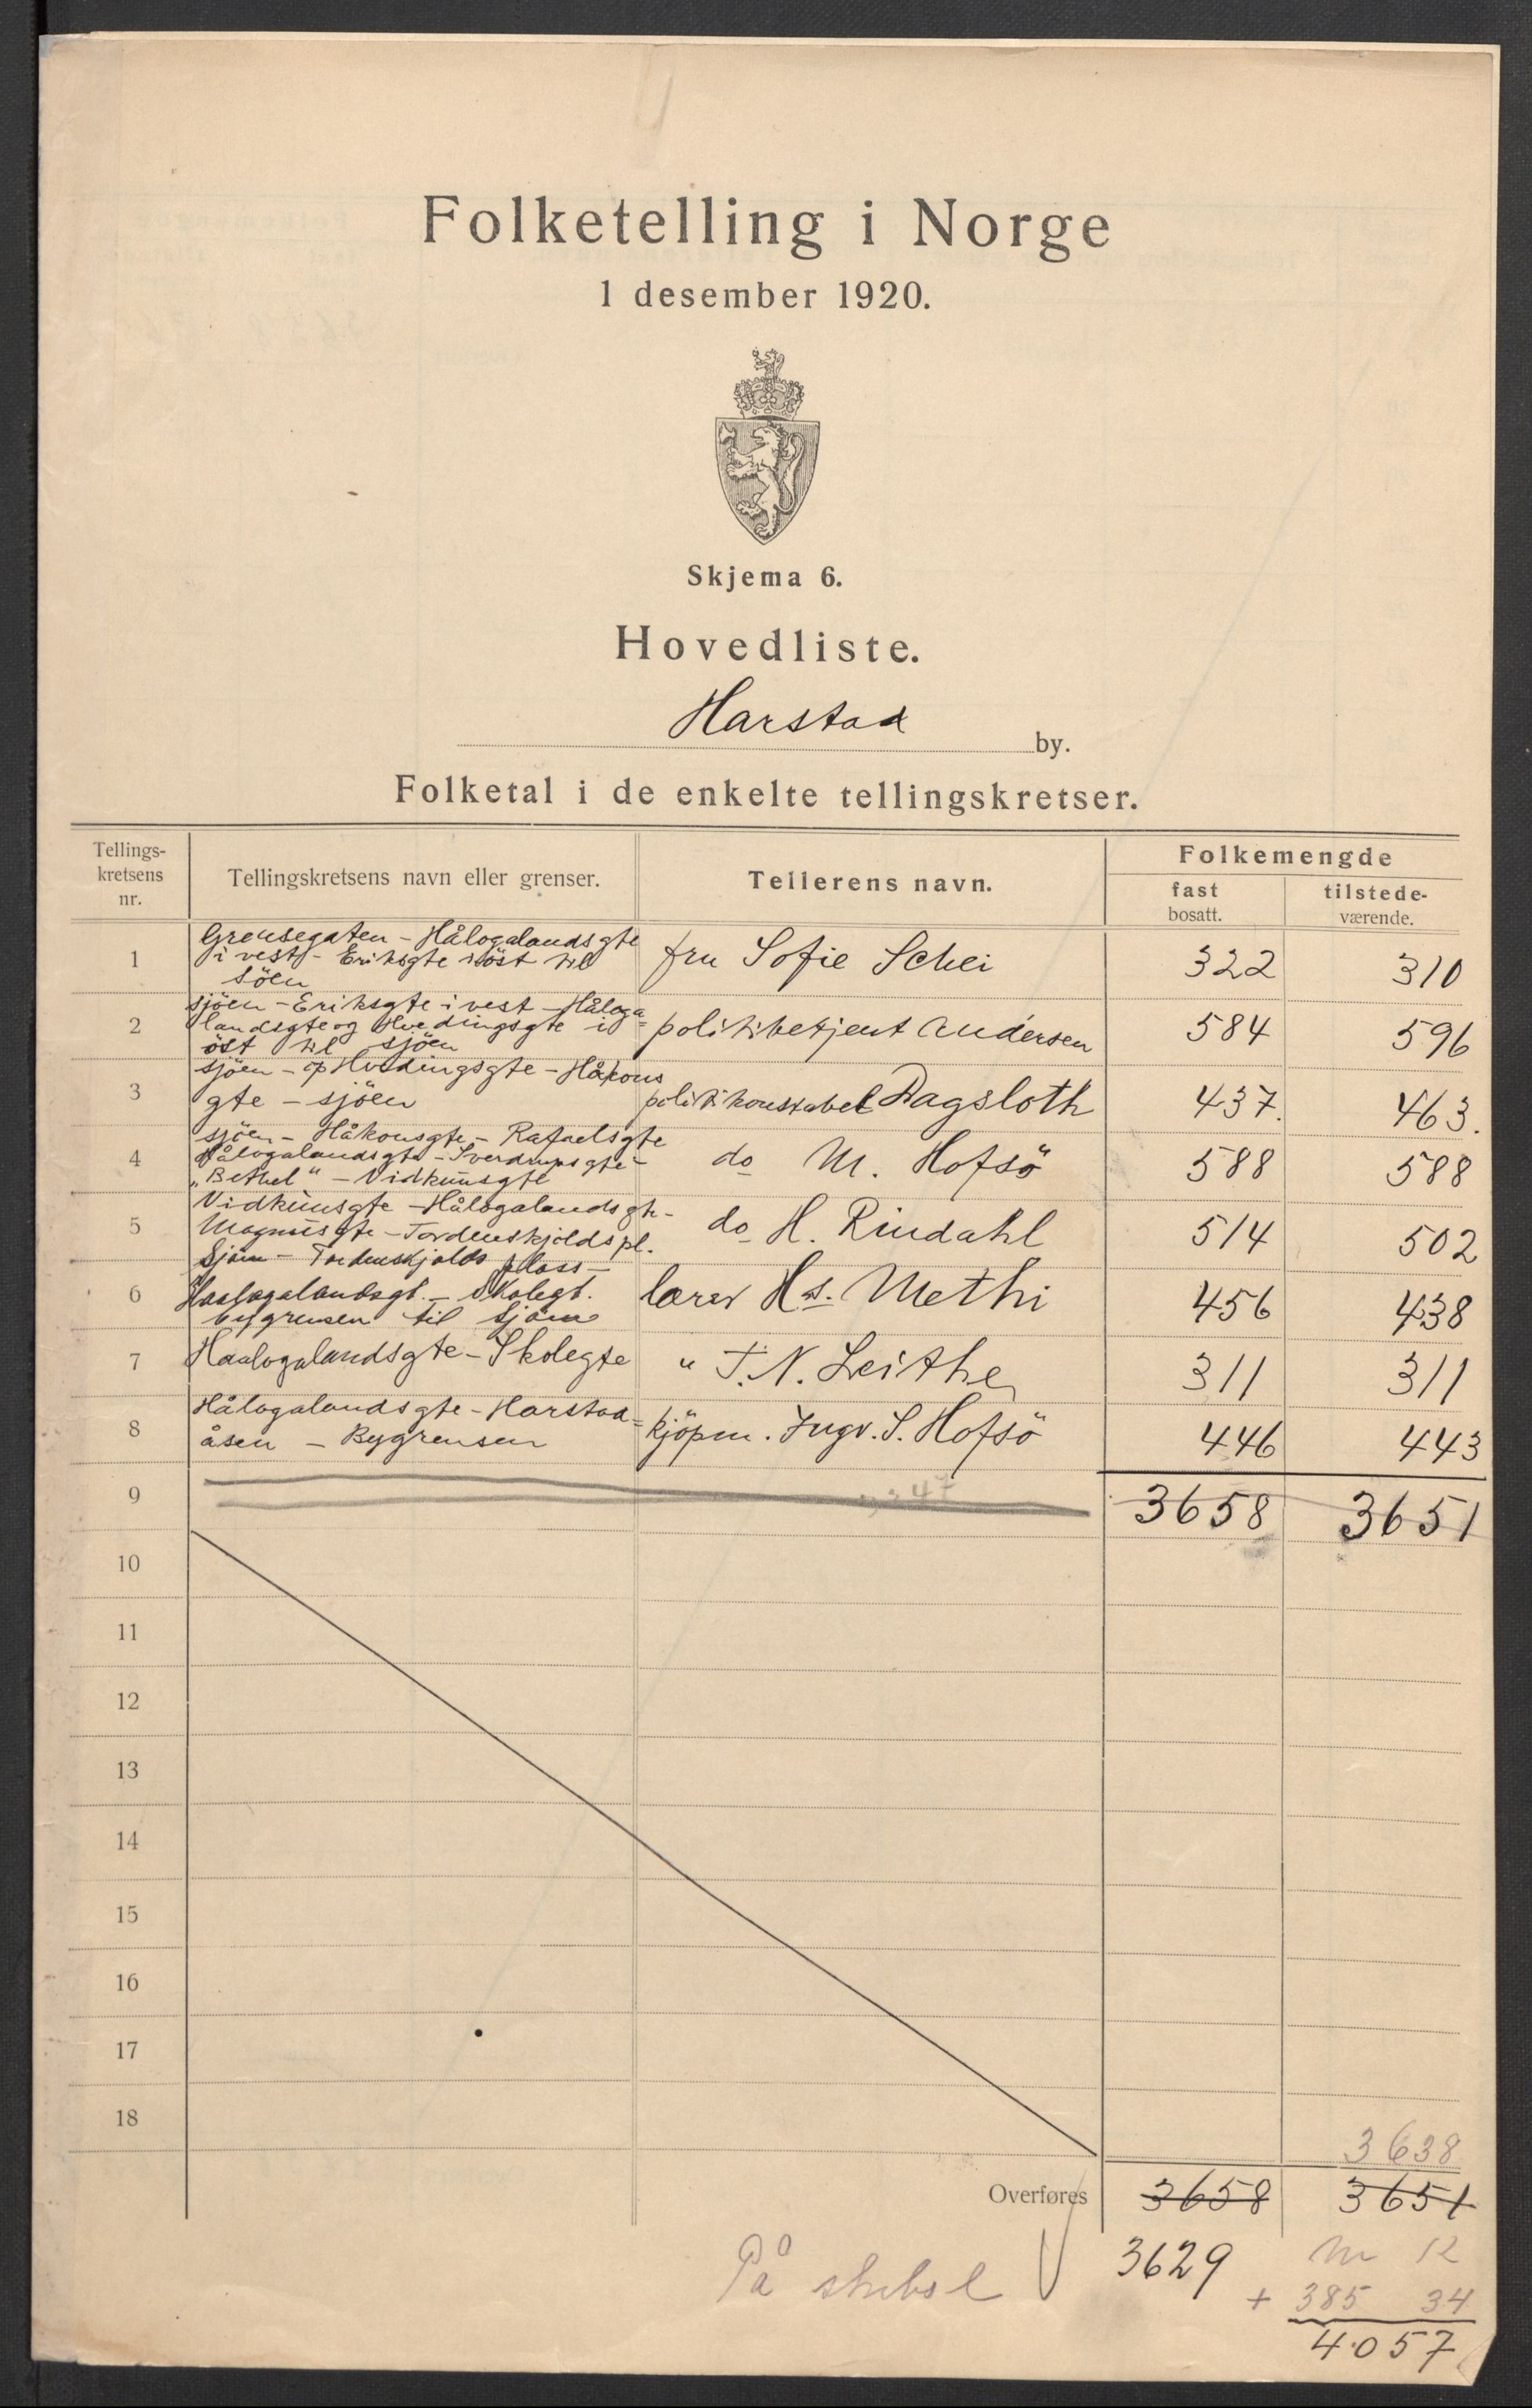 Folketelling i Norge
1 desember 1920.
Skjema 6.
Hovedliste.
Harstad by.
Folketal i de enkelte tellingskretser.
Tellings-
kretsens
nr.
Tellingskretsens navn eller grenser.
Tellerens navn.
Folkemengde
fast
bosatt.
tilstede-
værende.
1
Grensegaten - Hålogalandsgte
i vest - Eriksgte i öst til
söen
fru Sofie Schei
322
310
2
sjöen - Eriksgte i vest - Håloga
landsgte og Hvedingsgte i
öst til sjöen
politibetjent Andersen
584
596
3
sjöen - Hvedingsgte - Håkons
gte - sjöen
politikonstabel Dagsloth
437.
463.
4
sjöen - Håkonsgte - Rafaelsgte
Hålogalandsgte - Sverdrupsgte -
"Bethel" - Vidkunsgte
do M. Hofsö
588
588
5
Vidkunsgte - Hålogalandsgte -
Magnusgte - Tordenskjoldspl.
do H. Rindahl
514
502
6
Sjöen - Tordenskjolds plass -
Haalogalandsgt. - Skolegt.
bygrensen til sjöen
lærer Hs. Methi
456
438
7
Haalogalandsgte - Skolegte
" T. N. Leithe
311
311
8
Hålogalandsgte - Harstad=
åsen - Bygrensen
kjöpm. Ingv. S. Hofsö
446
443
9
3658
3651
10
11
12
13
14
15
16
17
18
3638
Overføres
3658
3651
På
3629
12
+ 385 34
4057